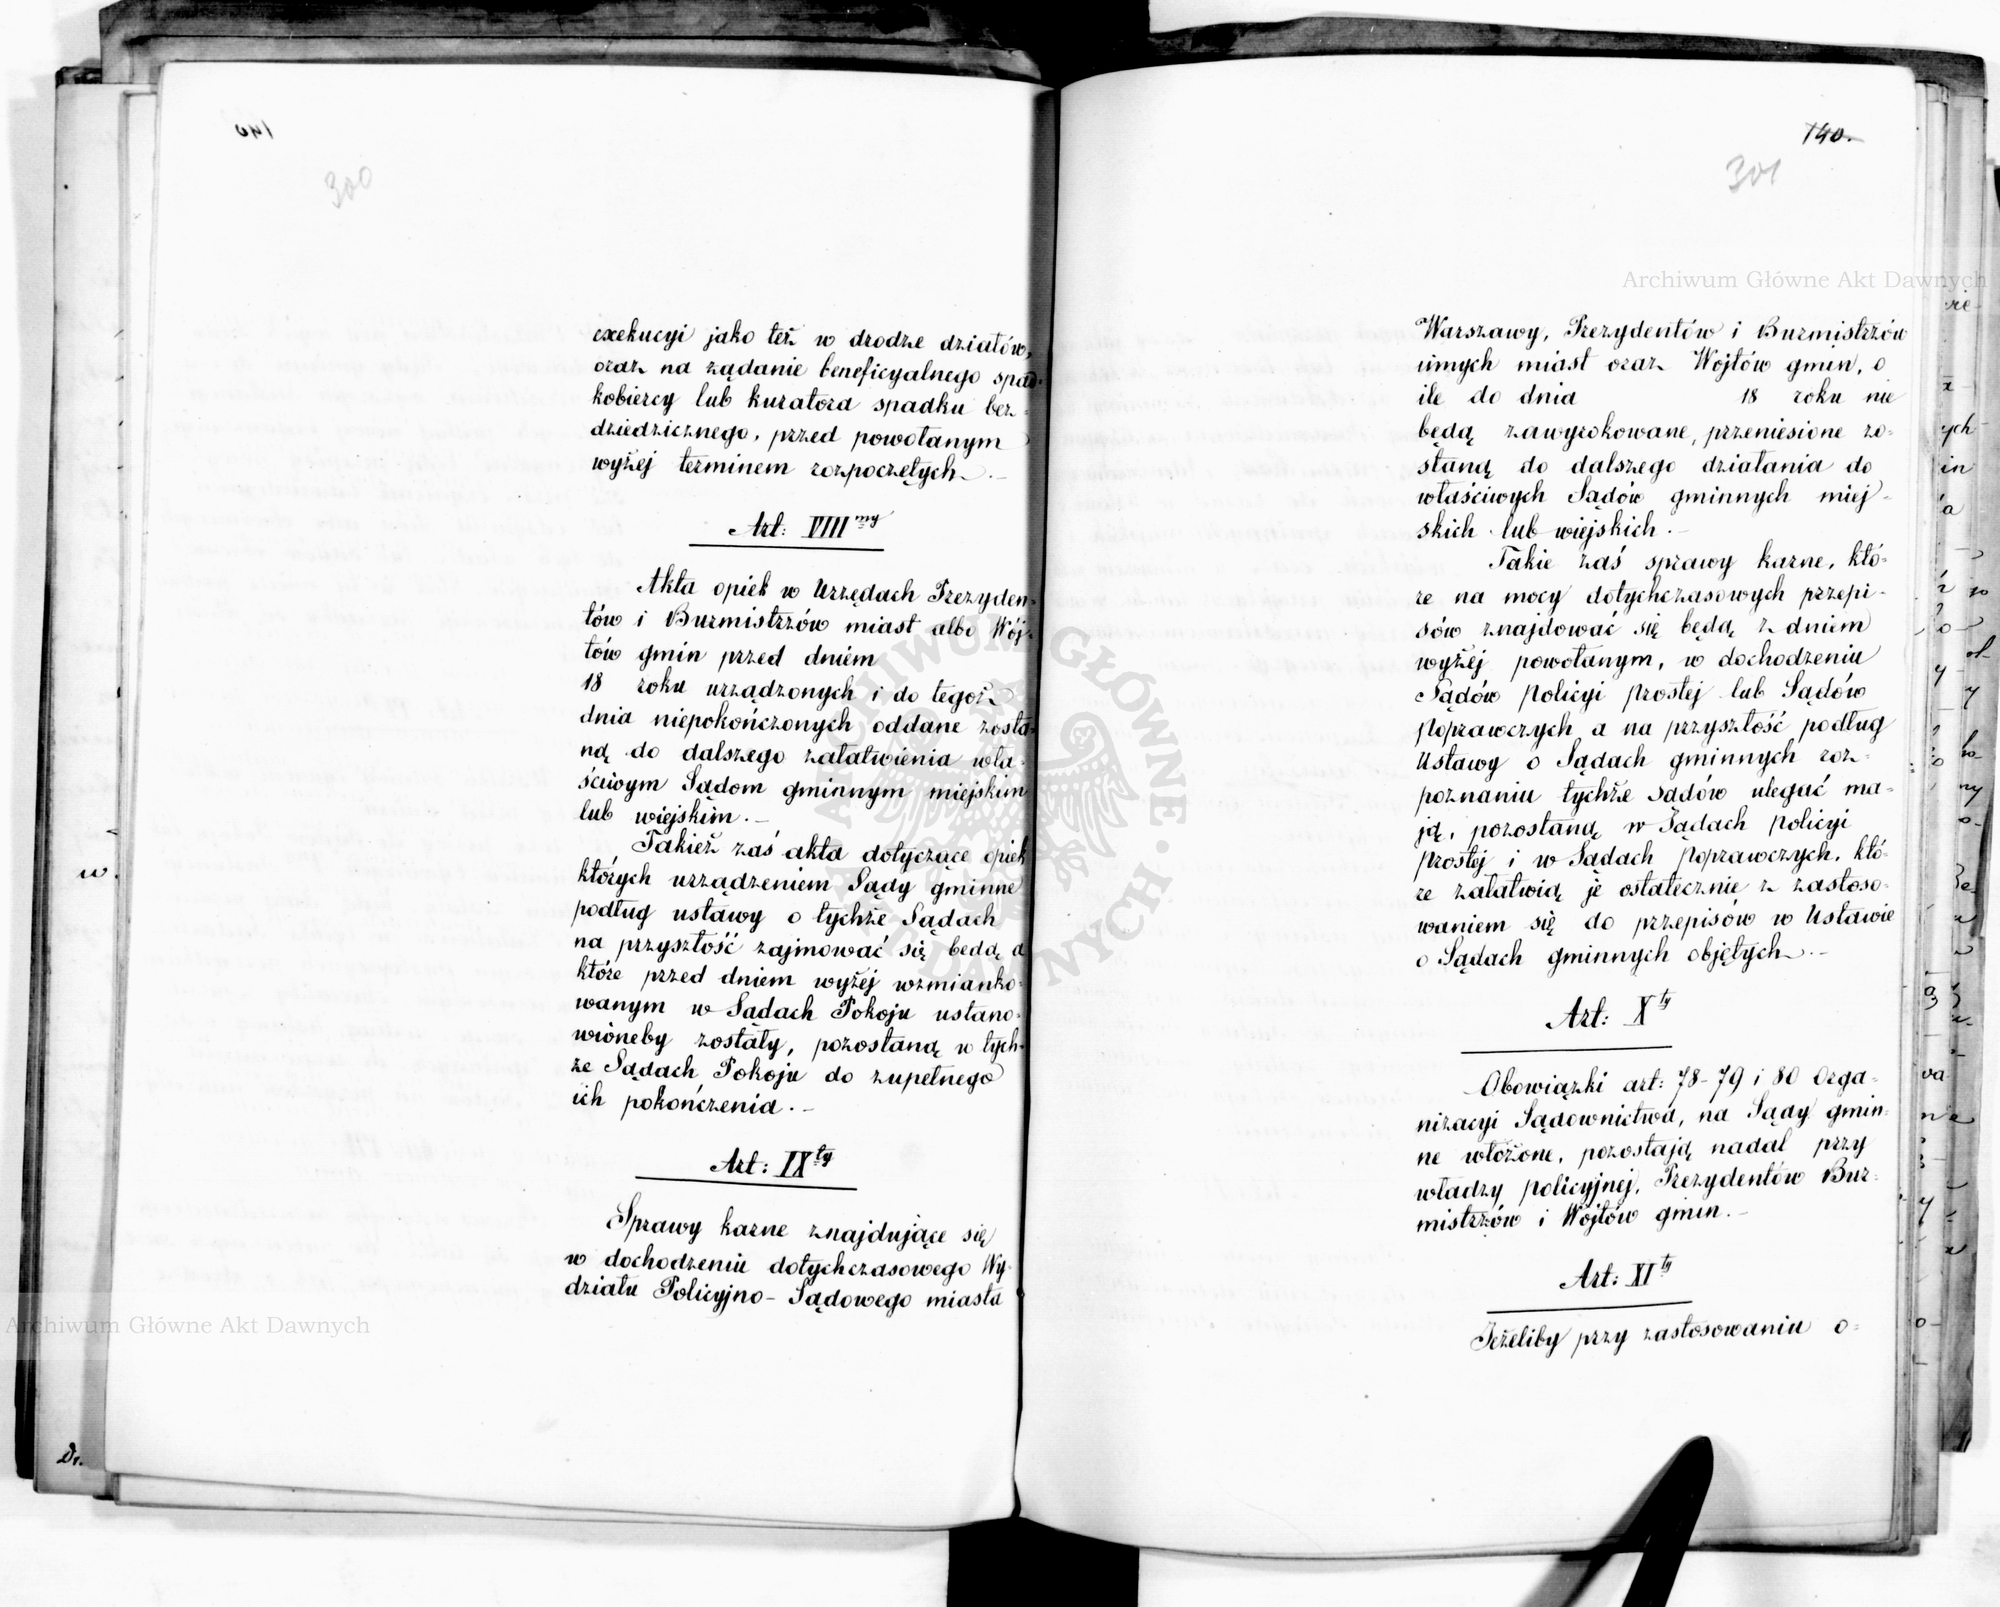 140
300
exekucyi jako też w drodze działów,
oraz na żądanie beneficyalnego spad-
kobiercy lub kuratora spadku bez-
dziedzicznego, przed powołanym
wyżej terminem rozpoczętych.-
Art: VIII my
Akta opiek w Urzędach Prezyden-
tów i Burmistrzów miast albo Wój-
tów gmin przed dniem
18 roku urządzonych i do tegoż
dnia niepokończonych oddane zosta-
ną do dalszego załatwienia wła-
ściwym Sądom gminnym miejskim
lub wiejskim.-
Takież zaś akta dotyczące opiek
których urządzeniem Sądy gminne
podług ustawy o tychże Sądach
na przyszłość zajmować się będą a
które przed dniem wyżej wzmianko-
wanym w Sądach Pokoju ustano-
wioneby zostały, pozostaną w tych-
że Sądach Pokoju do zupełnego
ich pokończenia.-
Art: IX ty
Sprawy karne znajdujące się
w dochodzeniu dotychczasowego Wy-
działu Policyjno-Sądowego miasta
140.
301
Warszawy, Prezydentów i Burmistrzów
innych miast oraz Wójtów gmin, o
ile do dnia 18 roku nie
będą zawyrokowane, przeniesione zo-
staną do dalszego działania do
właściwych Sądów gminnych miej-
skich lub wiejskich.-
Takie zaś sprawy karne, któ-
re na mocy dotychczasowych przepi-
sów znajdować się będą z dniem
wyżej powołanym, w dochodzeniu
Sądów policyi prostej lub Sądów
poprawczych, a na przyszłość podług
Ustawy o Sądach gminnych roz-
poznaniu tychże sądów ulegać ma-
ją, pozostaną w Sądach policyi
prostej i w Sądach poprawczych, któ-
re załatwią je ostatecznie z zastoso-
waniem się do przepisów w Ustawie
o Sądach gminnych objętych.-
Art: X ty
Obowiązki art: 78-79 i 80 Orga-
nizacyi Sądownictwa, na Sądy gmin-
ne włożone, pozostają nadal przy
władzy policyjnej, Prezydentów Bur-
mistrzów i Wójtów gmin.-
Art: XI ty
Jeżeliby przy zastosowaniu o-
Archiwum Główne Akt Dawnych
Archiwum Główne Akt Dawnych
ARCHIWUM GŁÓWNE AKT DAWNYCH